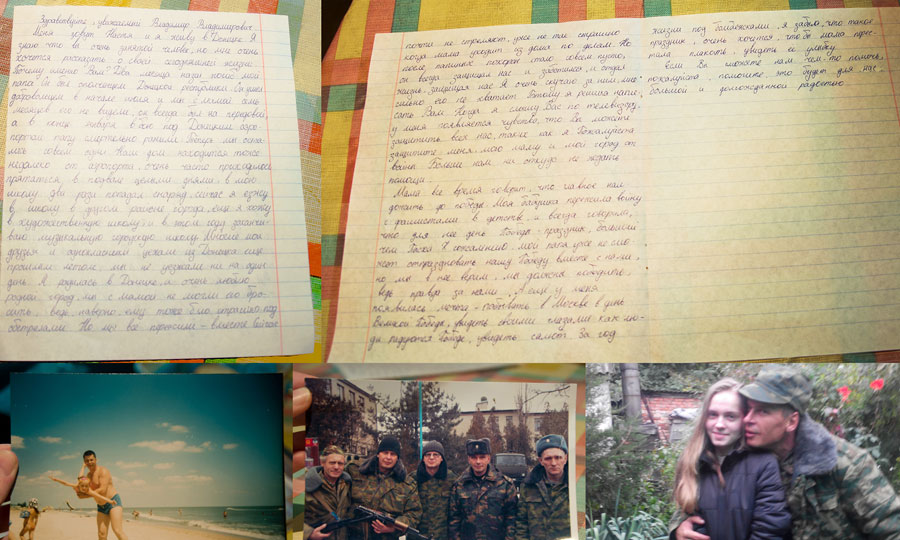 Здравствуйте, уважаемый Владимир Владимирович
Меня зовут Настя, и я живу в Донецке. Я
знаю, что вы очень занятой человек, но мне очень
хочется рассказать о своей сегодняшней жизни.
Почему именно Вам? Два месяца назад погиб мой
папа. Он был ополченцем Донецкой республики. Он ушел
добровольцем в начале июля и мы с мамой семь
месяцев его не видели, он всегда был на передовой,
а в конце января в бою под Донецким аэро-
портом папу смертельно ранили. Теперь мы оста-
лись совсем одни. Наш дом находится тоже
недалеко от аэропорта, очень часто приходилось
прятаться в подвале целыми днями, в мою
школу два раза попадал снаряд, сейчас я езжу
в школу в другом районе города, еще я хожу
в художественную школу и в этом году заканчи-
ваю музыкальную городскую школу. Многие мои
друзья и одноклассники уехали из Донецка еще
прошлым летом, мы не уезжали ни на один
день. Я родилась в Донецке, я очень люблю
родной город, мы с мамой не могли его бро-
сить, ведь, наверно, ему тоже было страшно под
обстрелами. Но мы все пережили - вместе. Сейчас
почти не стреляют, уже не так страшно
когда мама уходит из дома по делам. Но
после папиных похорон стало совсем пусто,
он всегда защищал нас и заботился, и отдал
жизнь, защищая нас. Я очень скучаю за ним, нам
сильно его не хватает. Потому я решила напи-
сать Вам. Когда я слышу Вас по телевизору,
у меня появляется чувство, что Вы можете
защитить всех нас, таких как я. Пожалуйста
защитите меня, мою маму и мой город от
войны. Больше нам не откуда не ждать
помощи.
Мама все время говорит, что главное нам
дожить до победы. Моя бабушка пережила войну
с фашистами в детстве, и всегда говорит,
что для нее день Победы - праздник, больший
чем Пасха. К сожалению, мой папа уже не смо-
жет отпраздновать нашу Победу вместе с нами,
но мы в нее верим, мы должны победить,
ведь правда за нами. А еще у меня
появилась мечта - побывать в Москве в день
Великой Победы, увидеть своими глазами как лю-
ди радуются Победе, увидеть салют. За год
жизни под бомбежками, я забыла, что такое
праздник, очень хочется, чтобы мама пере-
стала плакать, увидеть ее улыбку.
Если Вы сможете нам чем-то помочь,
пожалуйста, помогите, это будет для нас
большой и долгожданной радостью.